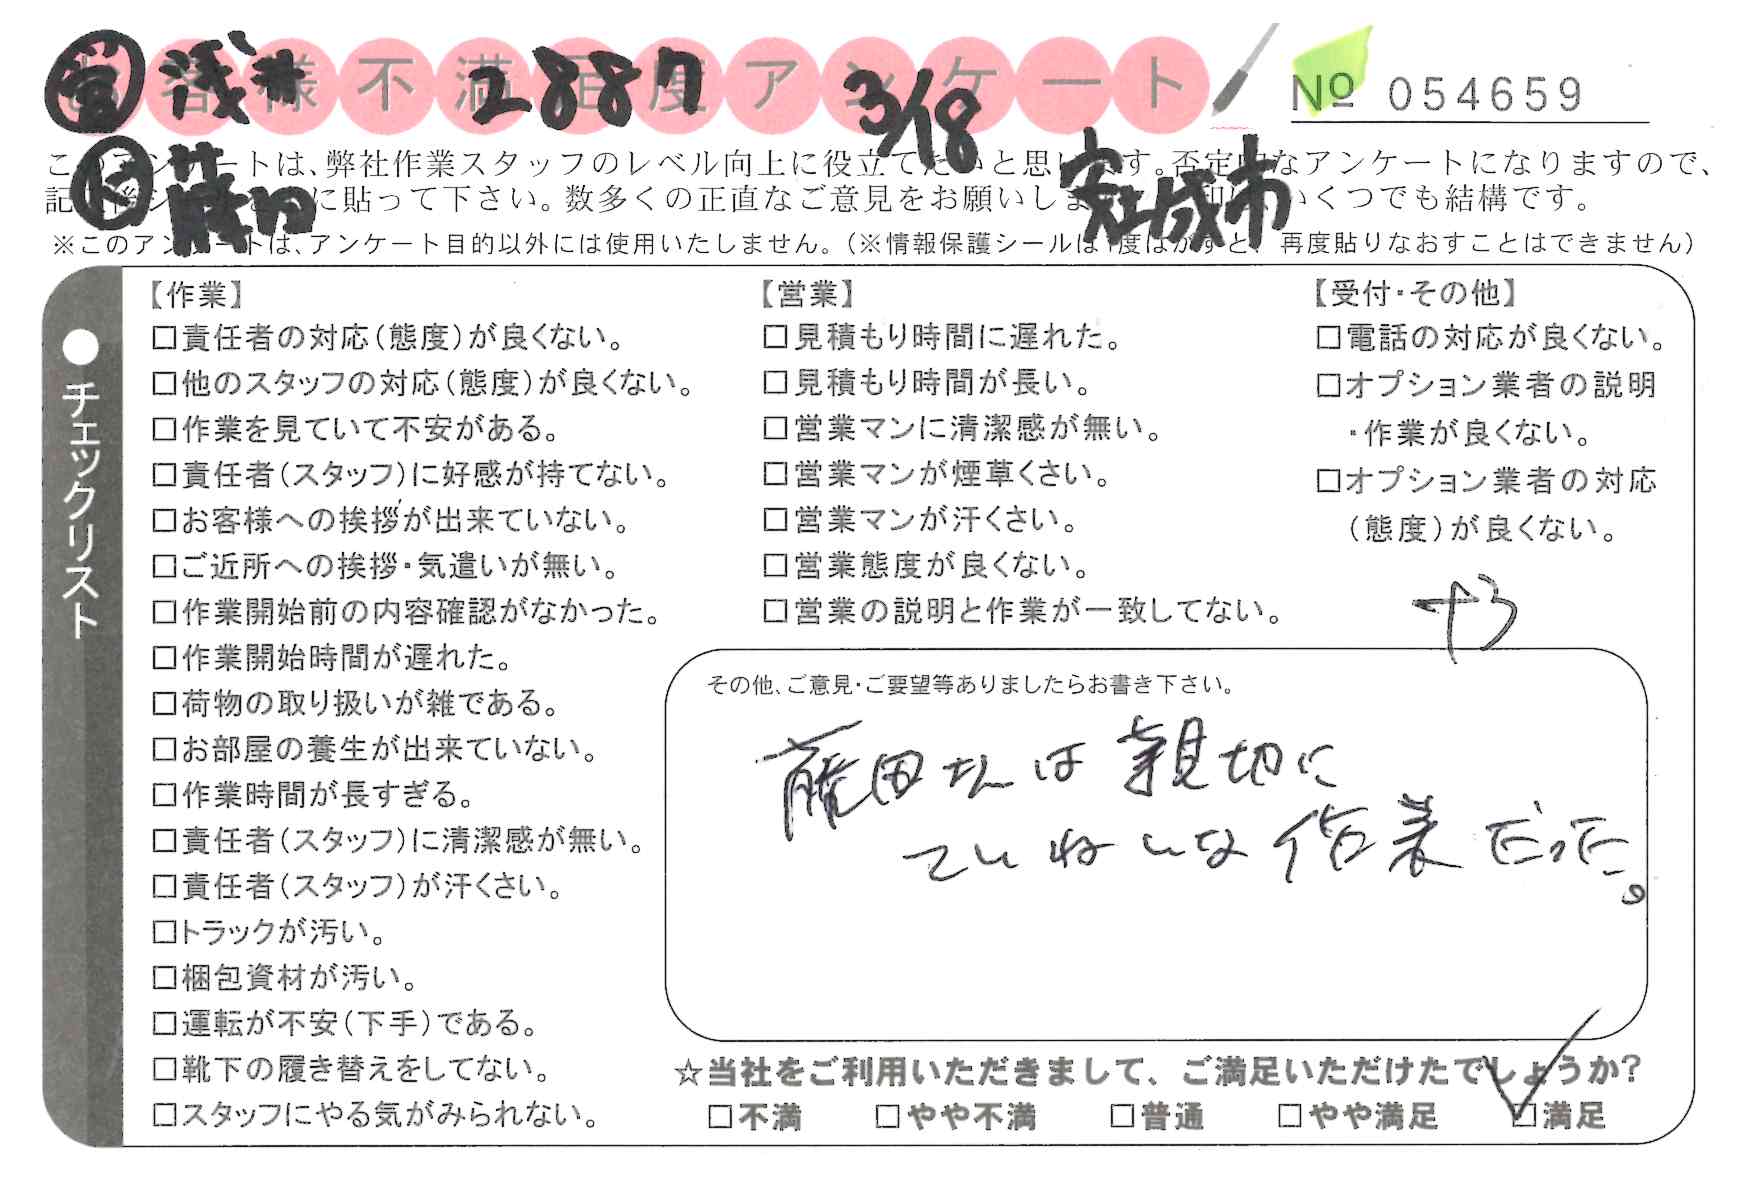 お客様不満足度アンケート
営 浅井 2887 3/18
№ 054659
このアンケートは、弊社作業スタッフのレベル向上に役立てたいと思います。否定的なアンケートになりますので、
記入後シールを に貼って下さい。数多くの正直なご意見をお願いします。 印は、いくつでも結構です。
安城市
※このアンケートは、アンケート目的以外には使用いたしません。(※情報保護シールは1度はがすと、再度貼りなおすことはできません)
●チェックリスト
【作業】
□責任者の対応(態度)が良くない。
□他のスタッフの対応(態度)が良くない。
□作業を見ていて不安がある。
□責任者(スタッフ)に好感が持てない。
□お客様への挨拶が出来ていない。
□ご近所への挨拶・気遣いが無い。
□作業開始前の内容確認がなかった。
□作業開始時間が遅れた。
□荷物の取り扱いが雑である。
□お部屋の養生が出来ていない。
□作業時間が長すぎる。
□責任者(スタッフ)に清潔感が無い。
□責任者(スタッフ)が汗くさい。
□トラックが汚い。
□梱包資材が汚い。
□運転が不安(下手)である。
□靴下の履き替えをしてない。
□スタッフにやる気がみられない。
【営業】
□見積もり時間に遅れた。
□見積もり時間が長い。
□営業マンに清潔感が無い。
□営業マンが煙草くさい。
□営業マンが汗くさい。
□営業態度が良くない。
□営業の説明と作業が一致してない。
【受付・その他】
□電話の対応が良くない。
□オプション業者の説明
・作業が良くない。
□オプション業者の対応
(態度)が良くない。
その他、ご意見・ご要望等ありましたらお書き下さい。
藤田さんは親切に
ていねいな作業だった。
☆当社をご利用いただきまして、ご満足いただけたでしょうか?
□不満 □やや不満 □普通 □やや満足 □満足